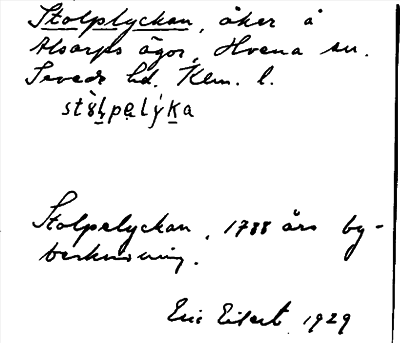 Stolplyckan, åker å
Alsarps ägor, Hvena sn.
Sevede hd. Klm. l.
stòḷpəlýka
Stolpelyckan, 1788 års by-
beskrivning.
Eric Eilert 1929